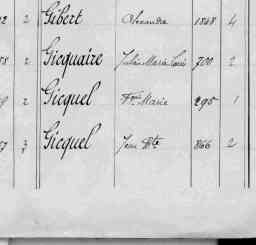 2 2 Gibert Alexandre 1848 4
8 2 Gicquaire Julien Marie Louis 700 2
9 2 Gicquel Fçois Marie 295 1
7 3 Gicquel Jean Bte 866 2